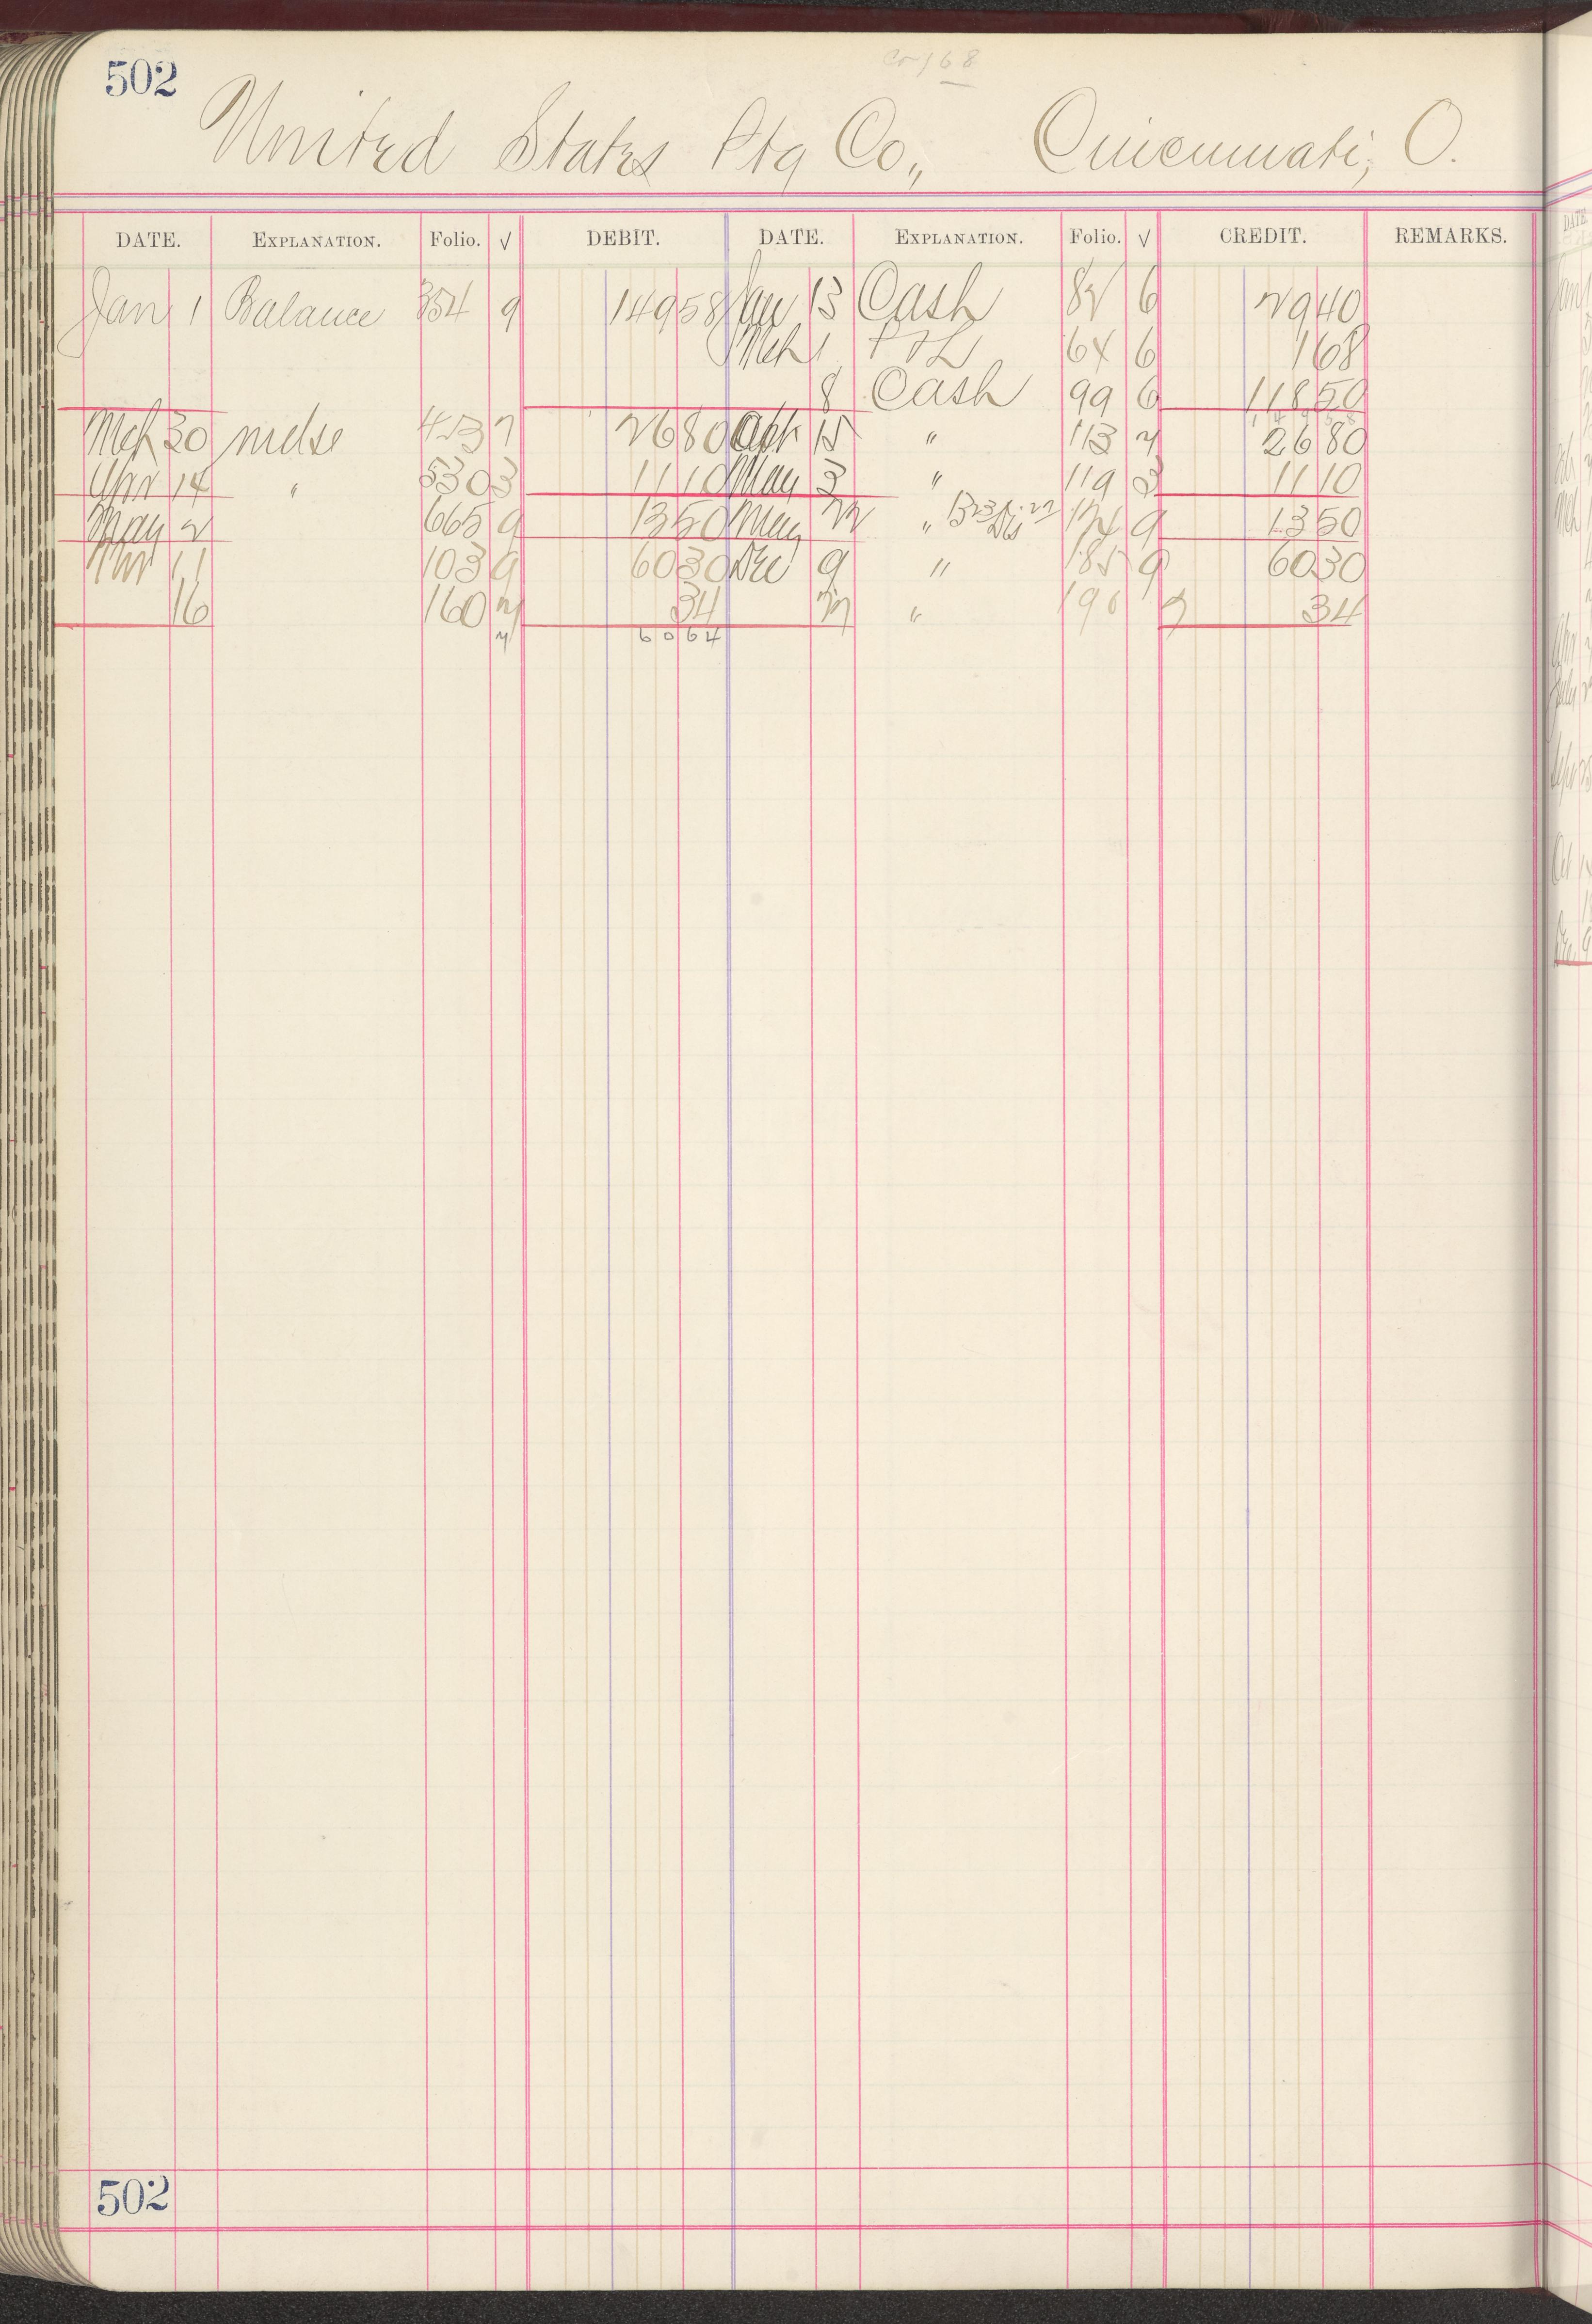 502
United States Ptg Co., Cincinnati, O.
DATE. EXPLANATION. Folio. √ DEBIT. DATE. EXPLANATION. Folio. √ CREDIT. REMARKS.
Jan 1 Balance 354 9 149 58 Jan 13 Cash 82 6 29 40
Mch 1 P & L 64 6 1 68
8 Cash 99 6 118 50
Mch 30 mdse 453 7 26 80 Apr 15 " 113 26 80
Apr 14 " 530 3 11 10 May 3 " 119 3 11 10
May 2 665 9 13 50 May 22 " 124 9 13 50
11 103 9 60 30 Dec 9 " 185 9 60 30
16 160 34 " 190 34
60 64
502